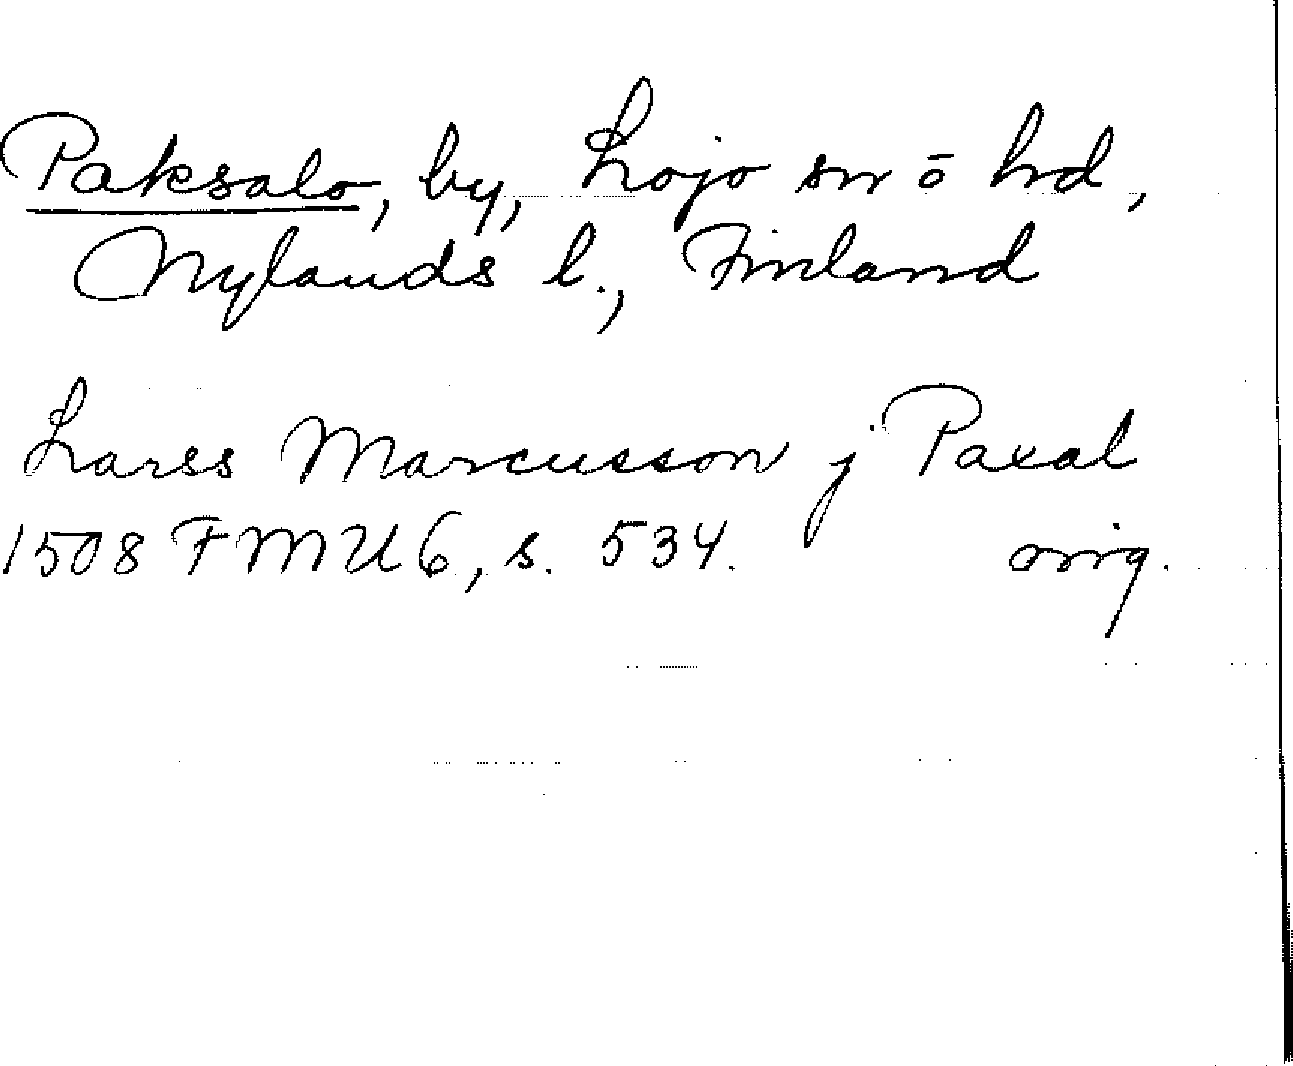 Paksalo, by, Lojo sn ō hd,
Nylands l., Finland
Larss Marcusson j Paxal
1508 FMU 6, s. 534. orig.